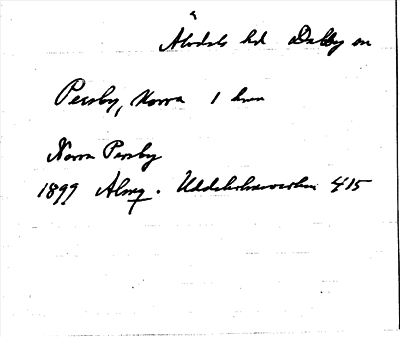 Älvdals hd Dalby sn
Persby, Norra 1 hmn
Norra Persby
1899 Älvq. Uddeholmsverken 415